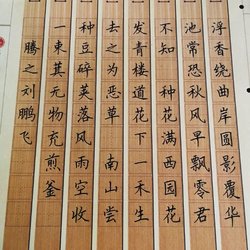 浮香绕曲岸圆影覆华
池常恐秋风早飘零君
不知种花满西园花
发青楼道花下一禾生
去之为恶草南山尝
种豆碎荚落风雨空收
一束萁无物充煎釜
腾之刘鹏飞